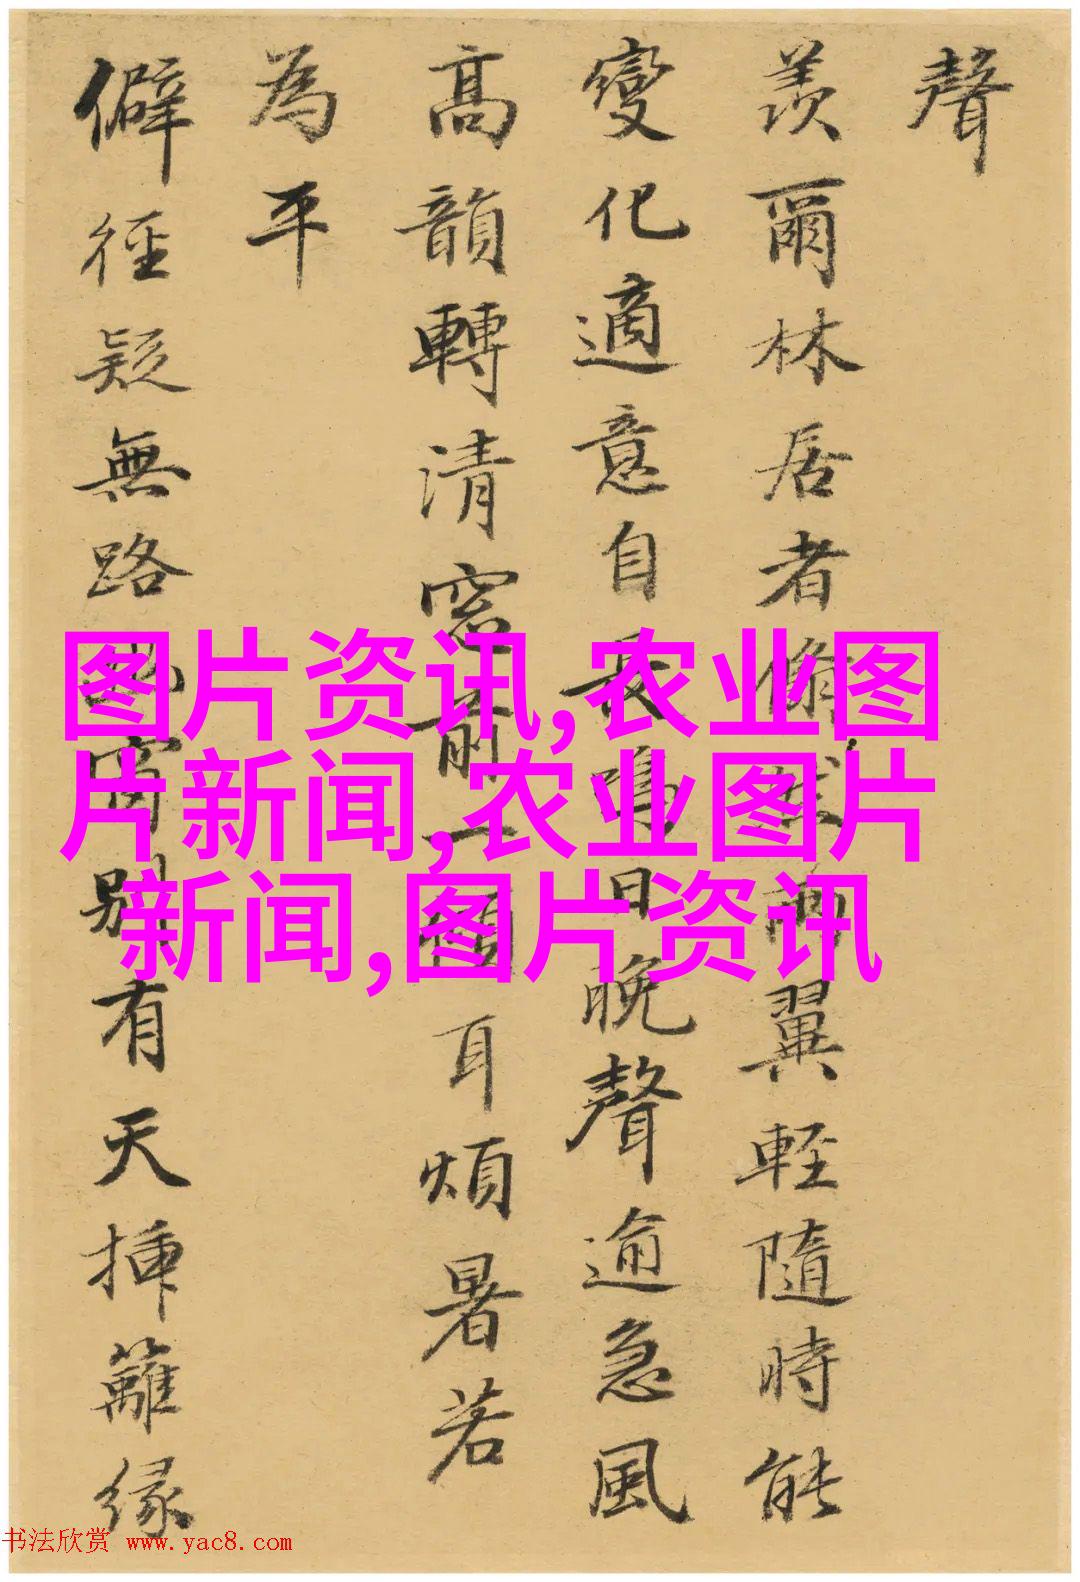 聲
羨爾林居者脩然兩翼輕隨時能
變化適意自長鳴日晚聲逾急風
高韻轉清窓前一傾耳煩暑若
為平
僻徑疑無路窗別有天插籬緣
图片资讯,农业图
片新闻,农业图片
新闻,图片资讯
书法欣赏 www.yac8.com